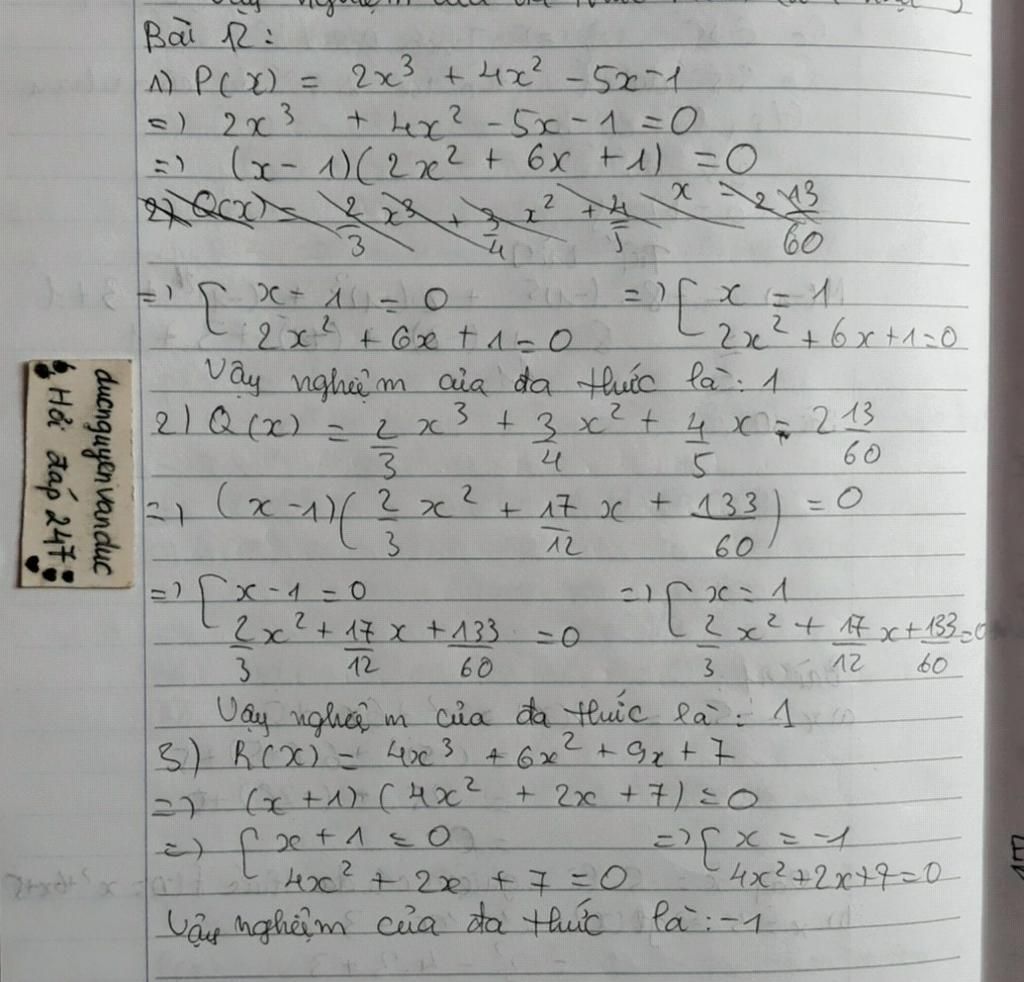 Bài 12:
1) P(x) = 2x³ + 4x² - 5x - 1
=) 2x³ + 4x² - 5x - 1 = 0
=) (x - 1)(2x² + 6x + 1) = 0
2) Q(x) = 2/3 x³ + 3/4 x² + 4/5 x - 2 13/60
=) [ x - 1 = 0 =) [ x = 1
2x² + 6x + 1 = 0 2x² + 6x + 1 = 0
Vậy nghiệm của đa thức là: 1
2) Q(x) = 2/3 x³ + 3/4 x² + 4/5 x - 2 13/60
=) (x - 1)(2/3 x² + 17/12 x + 133/60) = 0
=) [ x - 1 = 0 =) [ x = 1
2/3 x² + 17/12 x + 133/60 = 0 2/3 x² + 17/12 x + 133/60 = 0
Vậy nghiệm của đa thức là: 1
3) R(x) = 4x³ + 6x² + 9x + 7
=) (x + 1)(4x² + 2x + 7) = 0
=) [ x + 1 = 0 =) [ x = -1
4x² + 2x + 7 = 0 4x² + 2x + 7 = 0
Vậy nghiệm của đa thức là: -1
duongnguyenvanduc
Hỏi đáp 247